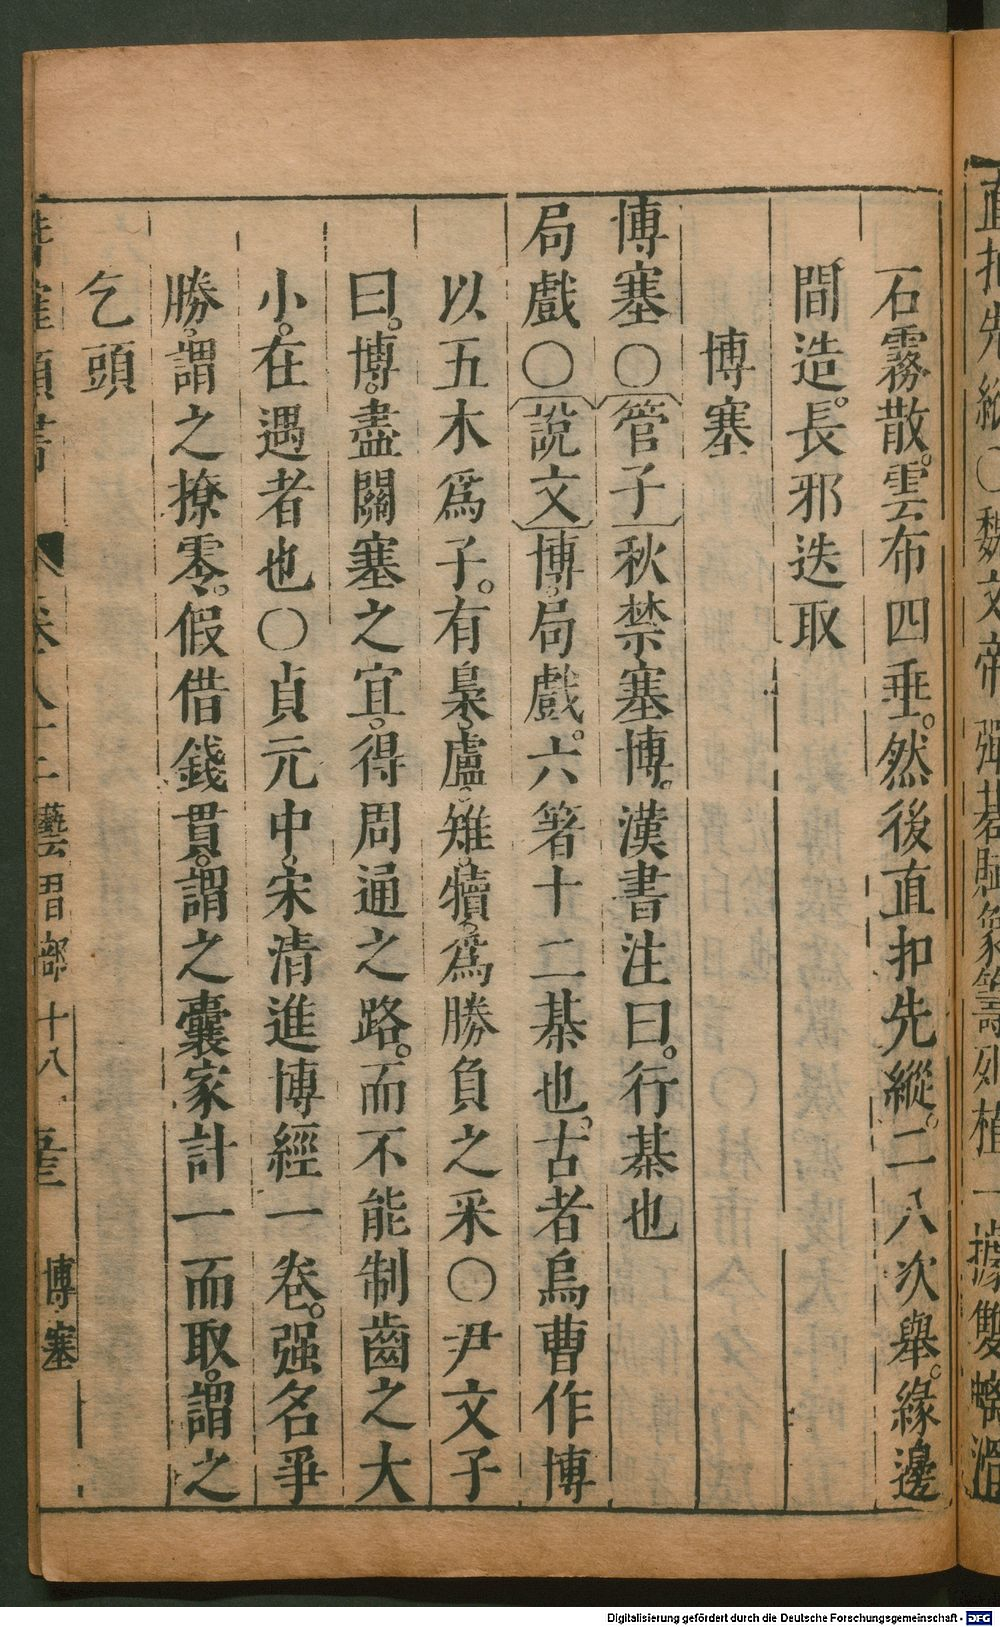 石霧散。雲布四垂。然後直扣先縱。二八次舉。緣邊
間造。長邪迭取
博塞
博塞〇管子秋禁塞博。漢書注曰。行棊也
局戲〇說文博。局戲。六箸十二棊也。古者烏曹作博
以五木爲子。有梟、盧、雉、犢、爲勝負之采〇尹文子
曰。博。盡關塞之宜。得周通之路。而不能制齒之大
小。在遇者也〇貞元中。宋清進博經一卷。强名爭
勝。謂之撩零。假借錢貫。謂之囊家計一而取。謂之
乞頭
卷八十二 藝習部十八 博塞
直扣先縱〇魏文帝彈棊賦象籌列植一據雙螭滑
Digitalisierung gefördert durch die Deutsche Forschungsgemeinschaft - DFG